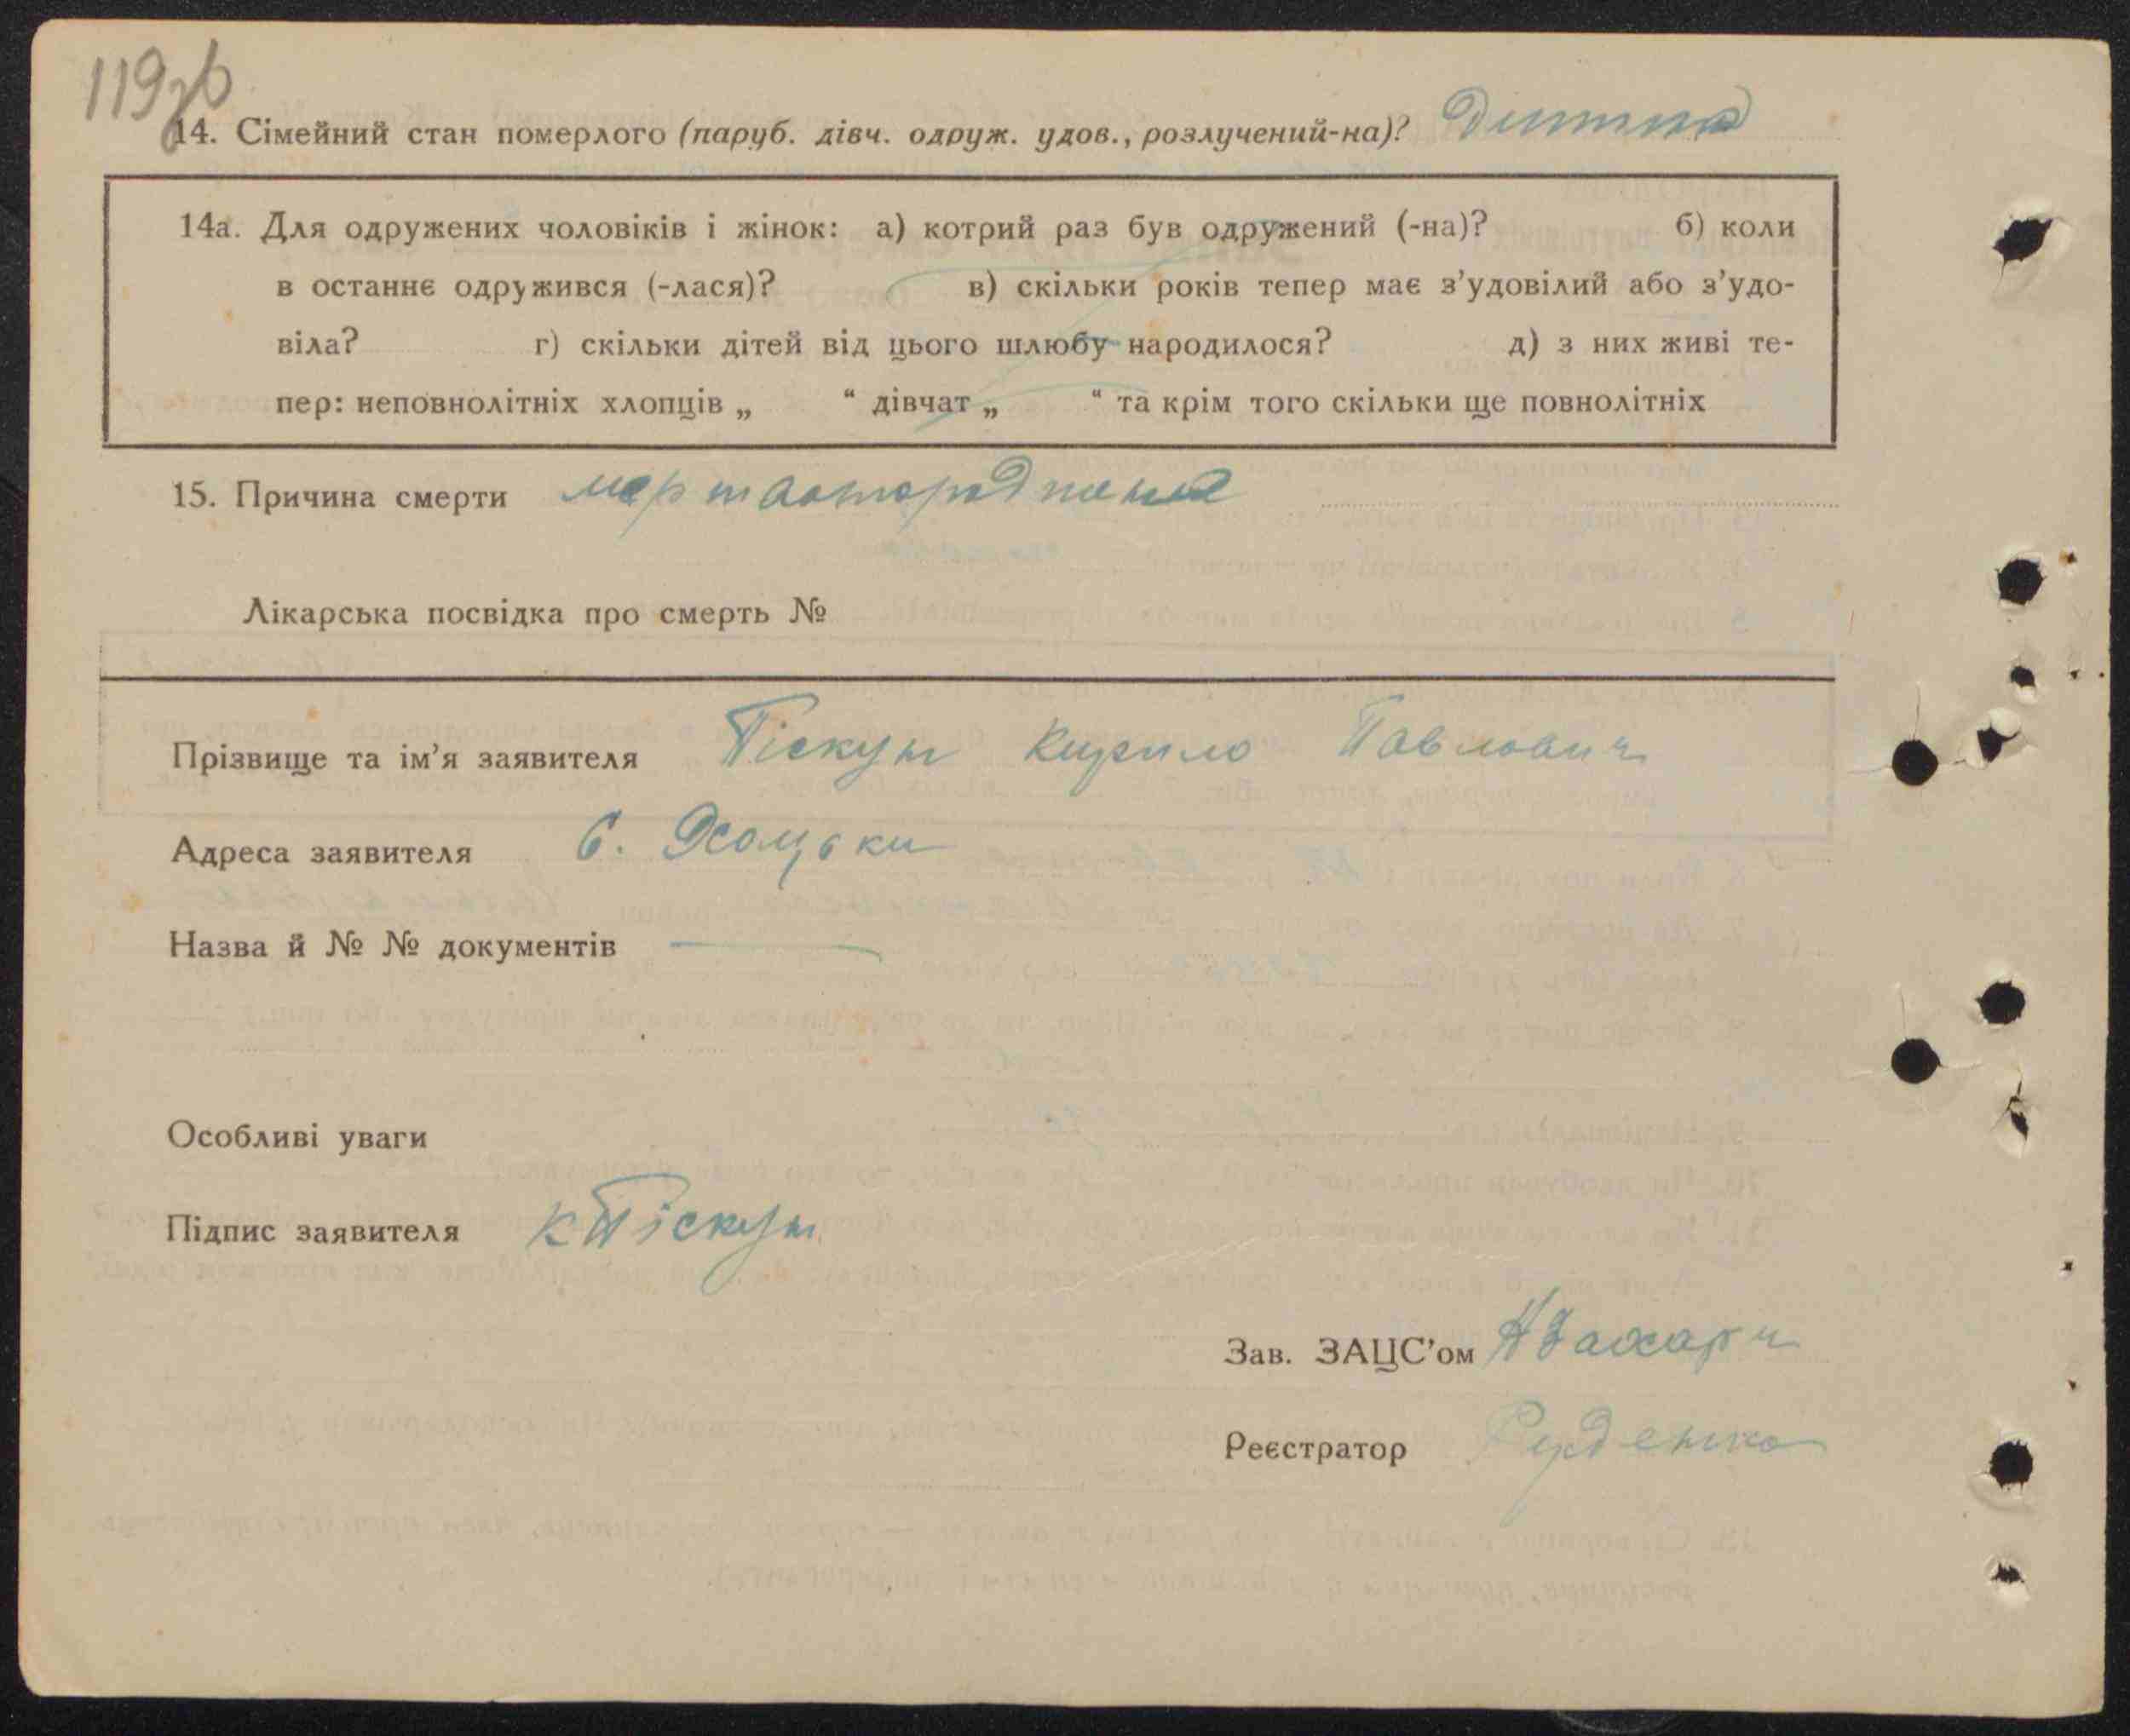 119зв
14. Сімейний стан померлого (паруб. дівч. одруж. удов., розлучений-на)? Дитина
14а. Для одружених чоловіків і жінок: а) котрий раз був одружений (-на)? б) коли
в останнє одружився (-лася)? в) скільки років тепер має з’удовілий або з’удо-
віла? г) скільки дітей від цього шлюбу народилося? д) з них живі те-
пер: неповнолітніх хлопців „ “ дівчат „ “ та крім того скільки ще повнолітніх
15. Причина смерти
Лікарська посвідка про смерть №
Прізвище та ім’я заявителя Піскун Кирило Павлович
Адреса заявителя с. Хомʼяки
Назва й № № документів
Особливі уваги
Підпис заявителя К Піскун
Зав. ЗАЦС’ом
Реєстратор Руденко